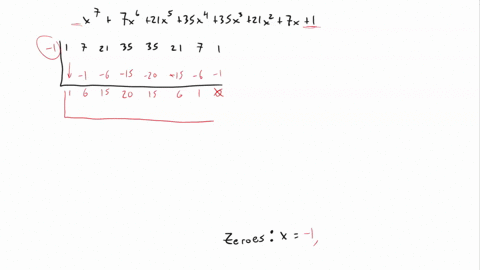 x⁷ + 7x⁶ +21x⁵ +35x⁴ +35x³ +21x² +7x +1
-1 | 1 7 21 35 35 21 7 1
-1 -6 -15 -20 -15 -6 -1
1 6 15 20 15 6 1 0
Zeroes: x = -1,